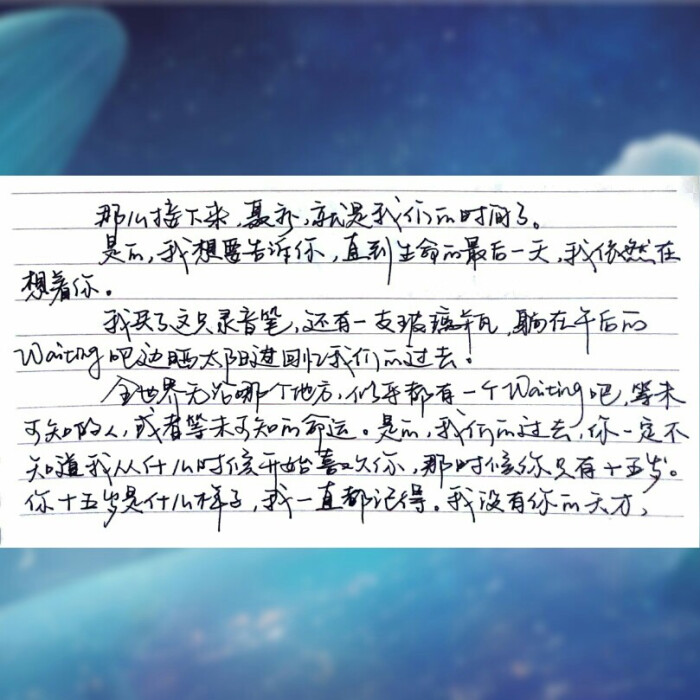 那么接下来,聂永,就是我们的时间了。
是的,我想要告诉你,直到生命的最后一天,我依然在
想着你。
我买了这只录音笔,还有一支玻璃瓶,躺在午后的
Waiting吧边晒太阳边回忆我们的过去。
全世界无论哪个地方,似乎都有一个Waiting吧,等未
可知的人,或者等未可知的命运。是的,我们的过去,你一定不
知道我从什么时候开始喜欢你,那时候你只有十五岁。
你十五岁是什么样子,我一直都记得。我没有你的天才,